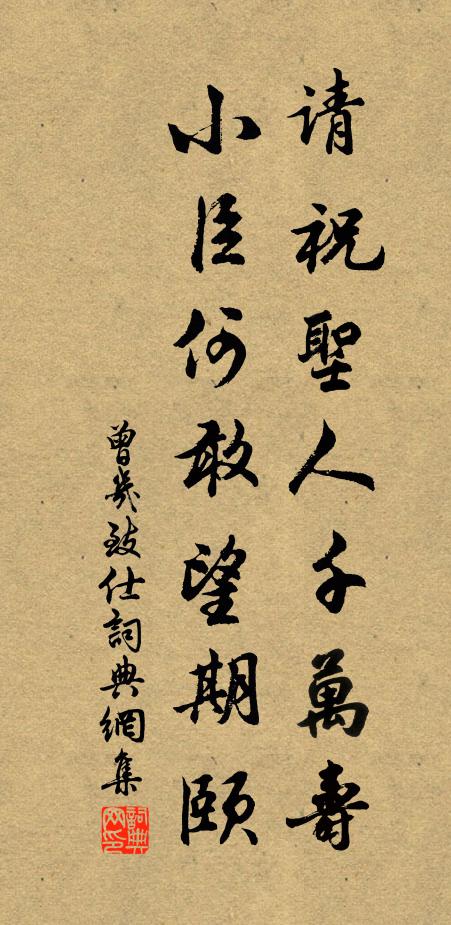 请祝聖人千萬壽
小臣何敢望期頤
曾幾致仕詞典網集
詞典網印